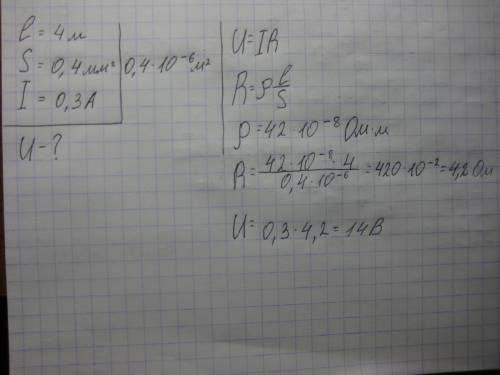 l = 4 м
S = 0,4 мм² | 0,4·10⁻⁶ м²
I = 0,3 А
U - ?
U = IR
R = ρ l/S
ρ = 42·10⁻⁸ Ом·м
R = 42·10⁻⁸·4 / 0,4·10⁻⁶ = 420·10⁻² = 4,2 Ом
U = 0,3·4,2 = 14 В